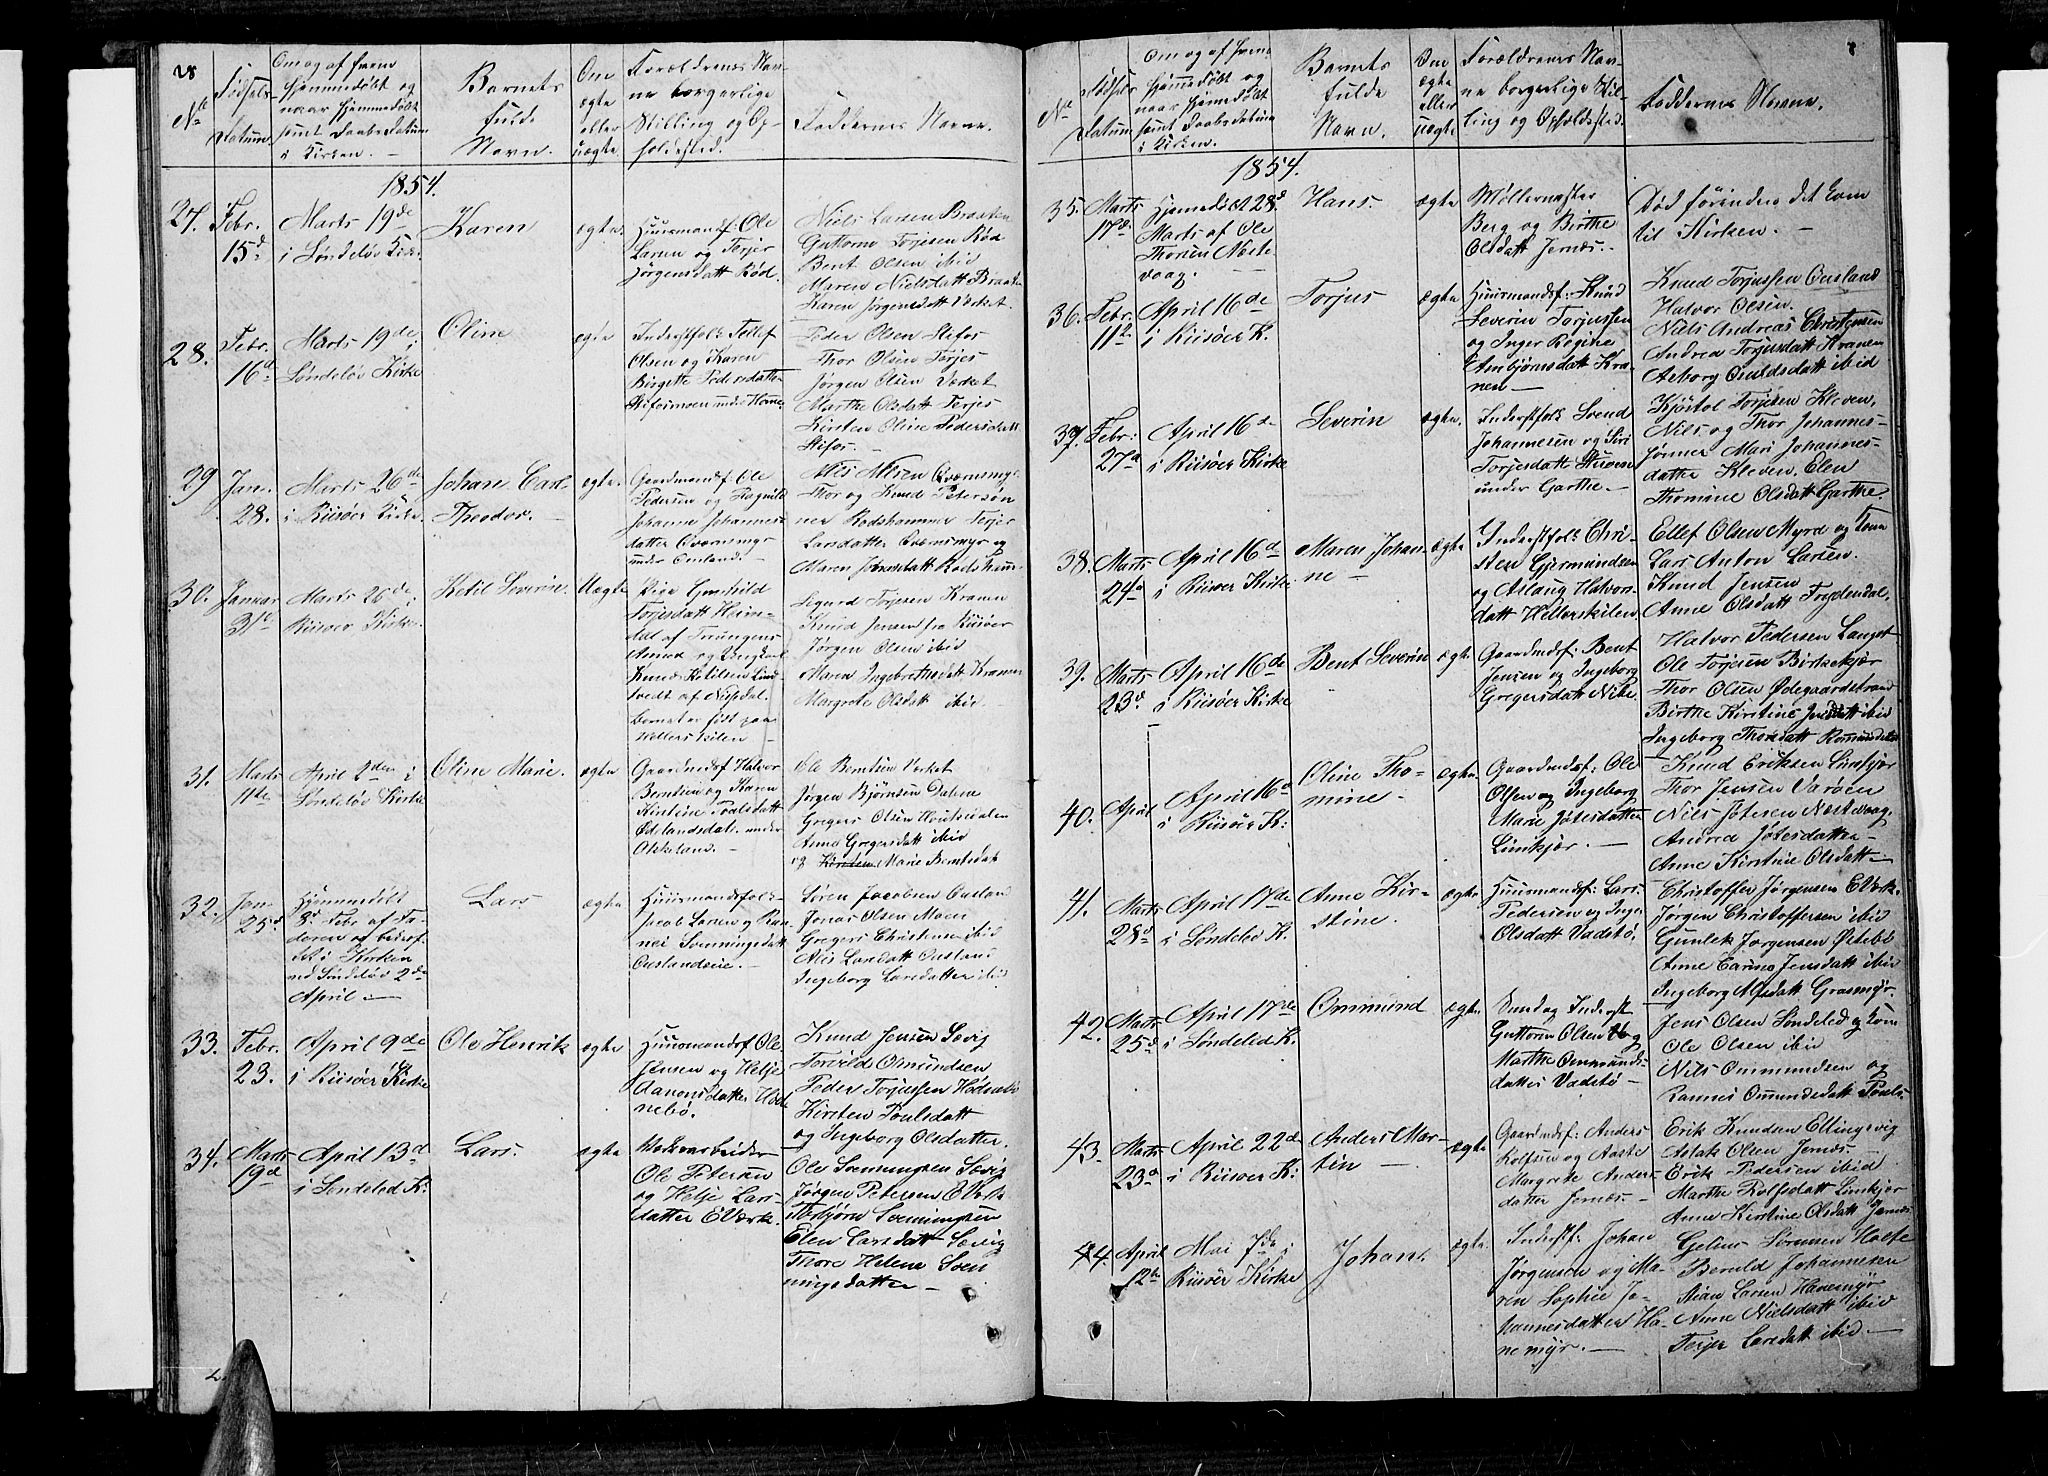 28
No
Fødsels
Datum
Om og af hvem
hjemmedøbt og
naar hjemmedøbt
samt Daabs Datum
i Kirken. —
Barnets
fulde
Navn.
Om
ægte
eller
uægte.
Forældrenes Nav-
ne borgerlige
Stilling og Op-
holdssted.
Faddernes Navne.
1854.
27. Febr.
15d
Marts 19de
i Søndeløv Kirke
Karen
ægte.
Huusmandsf: Ole
Larsen og Terjer
Jørgensdatt Rød.
Niels Larsen Braaten
Guttorm Torjesen Rød
Bent Olsen ibid
Maren Nielsdatt Braaten
Karen Jørgensdatt Værket.
28. Febr.
16d
Marts 19de i
Søndeløv Kirke
Oline
ægte
Inderstfolk Tellef
Olsen og Karen
Birgitte Pedersdatter
Peder Olsen Stifos
Thor Olsen Torjes
Jørgen Olsen Værket
Marthe Olsdatt Terjes
Kirsten Oline Pedersdatt
Stifos. —
29 Jan.
28.
Marts 26de
i Riisøer Kirke
Johan Carl
Theodor. —
ægte.
Gaardmandsf: Ole
Pedersen og Ragnild
Johanne Johannes-
datter Qværnsmyr
under Omland. —
Nils Nilsen Qværnsmyr
Thor og Knud Petersøn-
ner Rødshammer Terjer
Larsdatter Qværnsmyr og
30. Januar
31te
Marts 26de i
Riisøer Kirke.
Ketil Severin.
Uægte
Pige Gunhild
Torjesdatt
Knud Ketilsen
Barnet er født paa
Helleskilen —
Sigurd Torjesen Kranen
Knud Jensen fra Riisøer
Jørgen Olsen ibid
Maren Ingebrethsdatt Kranen
Margrete Olsdatt ibid —
31. Marts
11te
April 2den i
Søndeløv Kirke
Oline Marie.
ægte
Gaardmdsf Halvor
Berntsen og Karen
Kirstine Poulsdatt
under
Askeland. —
Ole Berntsen Værket
Jørgen Bjørnsen Dalen
Gregers Olsen
Anne Gregersdatt ibid
og Kirsten Marie Berntsdatt
32. Jan.
25d
Hjemmedøbt
8d Febr af Fa-
deren og bekræf-
tet i Kirken
ved Søndeløv 2den
April —
Lars
ægte
Huusmandsfolk
Jacob Larsen og Ran-
nei Svenningsdatt
Ouslandseie. —
Søren Jacobsen Ousland
Jonas Olsen Moen
Gregers Christensen ibid
Alis Larsdatt Ousland
Ingeborg Larsdatter ibid
33. Febr.
23.
April 9de
i Riisøer Kirke
Ole Henrik
ægte
Huusmandsf Ole
Jensen og Helje
Aanonsdatter Hød-
nebø.
Knud Jensen Sævig
Torvild Osmundsen
Peder Torjussen Hødnebø
Kirsten Poulsdatt
og Ingeborg Olsdatter.
34. Marts
19d
April 13d
i Søndeled K:
Lars.
ægte
Værksarbeider
Ole Petersen
og Helje Lars-
datter E Værk.
Ole Svenningsen Sævig
Jørgen Petersen E Værk
Thorbjørn Svenningsen
Elen Larsdatt Sævig
Thore Helene Sven
ningsdatter —
No
Fødsels
Datum
Om og af hvem
hjemmedøbt og
naar hjemmedøbt
samt Daabsdatum
i Kirken.
Barnets
fulde
Navn.
Om
ægte
eller
uægte
Forældrenes Nav-
ne borgerlige Stil-
ling og Opholdssted.
Faddernes Navne.
1854.
35. Marts
17de
Hjemmedøbt 28d
Marts af Ole
Thorsen Næste-
vaag. —
Hans.
ægte
Møllermester
Berg og Birthe
Olsdatt Jernæs. —
Død førinden det kom
til Kirken. —
36. Febr.
11te
April 16de
i Riisøer K.
Torjus
ægte
Huusmandsf: Knud
Severin Torjussen
og Inger Regine
Ambjørnsdatt Kra-
nen —
Knud Torjussen Ousland
Halvor Olsen.
Niels Andreas Christensen
Andrea Torjusdatt Kranen
Asborg Ouuldsdatt ibid
37. Febr:
27d
April 16de
i Riisøer Kirke
Severin
ægte.
Inderstfolk Svend
Johannesen og Siri
Torjesdatt Stuven
under Garthe. —
Kjøstol Torjesen Kleven,
Nils og Thor Johannes-
sønner Mari Johannes-
datter Kleven. Elen
Thomine Olsdatt Garthe.
38. Marts
24d
April 16d
i Riisøer Kirke
Maren Johan-
ne —
ægte
Inderstfolk Chri-
sten Gjermundsen
og Aslaug Halvors-
datt Hellerskilen
Ellef Olsen Myra og Kone
Lars Anton Larsen.
Knud Jensen
Anne Olsdatt Frydendal.
39. Marts
23d
April 16de
i Riisøer Kirke
Bent Severin
ægte.
Gaardmdsf: Bent
Jensen og Ingeborg
Gregersdatt
Halvor Pedersen Lauget
Ole Torjesen Birkekjær
Thor Olsen Ødegaardstrand
Birthe Kirstine Jensdatt ibid
Ingeborg Thorsdatt
40. April
April 16d
i Riisøer K:
Oline Tho-
mine —
ægte.
Gaardmdsf: Ole
Olsen og Ingeborg
Marie Jøtesdatter
Linkjær.
Knud Eriksen Linkjær
Thor Jensen Varøen
Niels Jøtesen Næstevaag
Andrea Jøtesdatter —
Anne Kirstine Olsdatt —
41. Marts
28d
April 17de
i Søndeløv K.
Anne Kir-
stine.
ægte
Huusmandsf: Lars
Pedersen og Inger
Olsdatt Vadstø.
Christoffer Jørgensen E Værk.
Jørgen Christoffersen ibid
Gunlek Jørgensen Østebø
Anne Carine Jensdatt ibid
Ingeborg Alfsdatt Grasmyr.
42. Marts
25d
April 17de
i Søndeled K.
Ommund
ægte.
Guttorm Olsen og
Marthe Ommunds-
datter Vadstø —
Jens Olsen Søndeled og Kone
Ole Olsen ibid
Niels Ommundsen og
Rannei Ommundsdatt
43. Marts
23d
April 22d
i Riisøer K:
Anders Mar-
tin —
ægte
Gaardmdsf: Anders
Rolfsen og Aaste
Margrete Anders-
datter Jernæs —
Erik Knudsen Ellingsvig
Aslak Olsen Jernæs
Erik Pedersen ibid
Marthe Rolfsdatt Linkjær
Anne Kirstine Olsdatt Jernæs
44. April
12te
Mai 7de i
Riisøer Kirke
Johan.
ægte.
Inderstf: Johan
Jørgensen og Ma-
ren Sophie Jo-
hannesdatter Ha-
nemyr. —
Gelius Sørensen Holte
Beruld Johannesen
Stian Larsen Hanemyr
Anne Nielsdatt ibid
Terjer Larsdatt ibid —